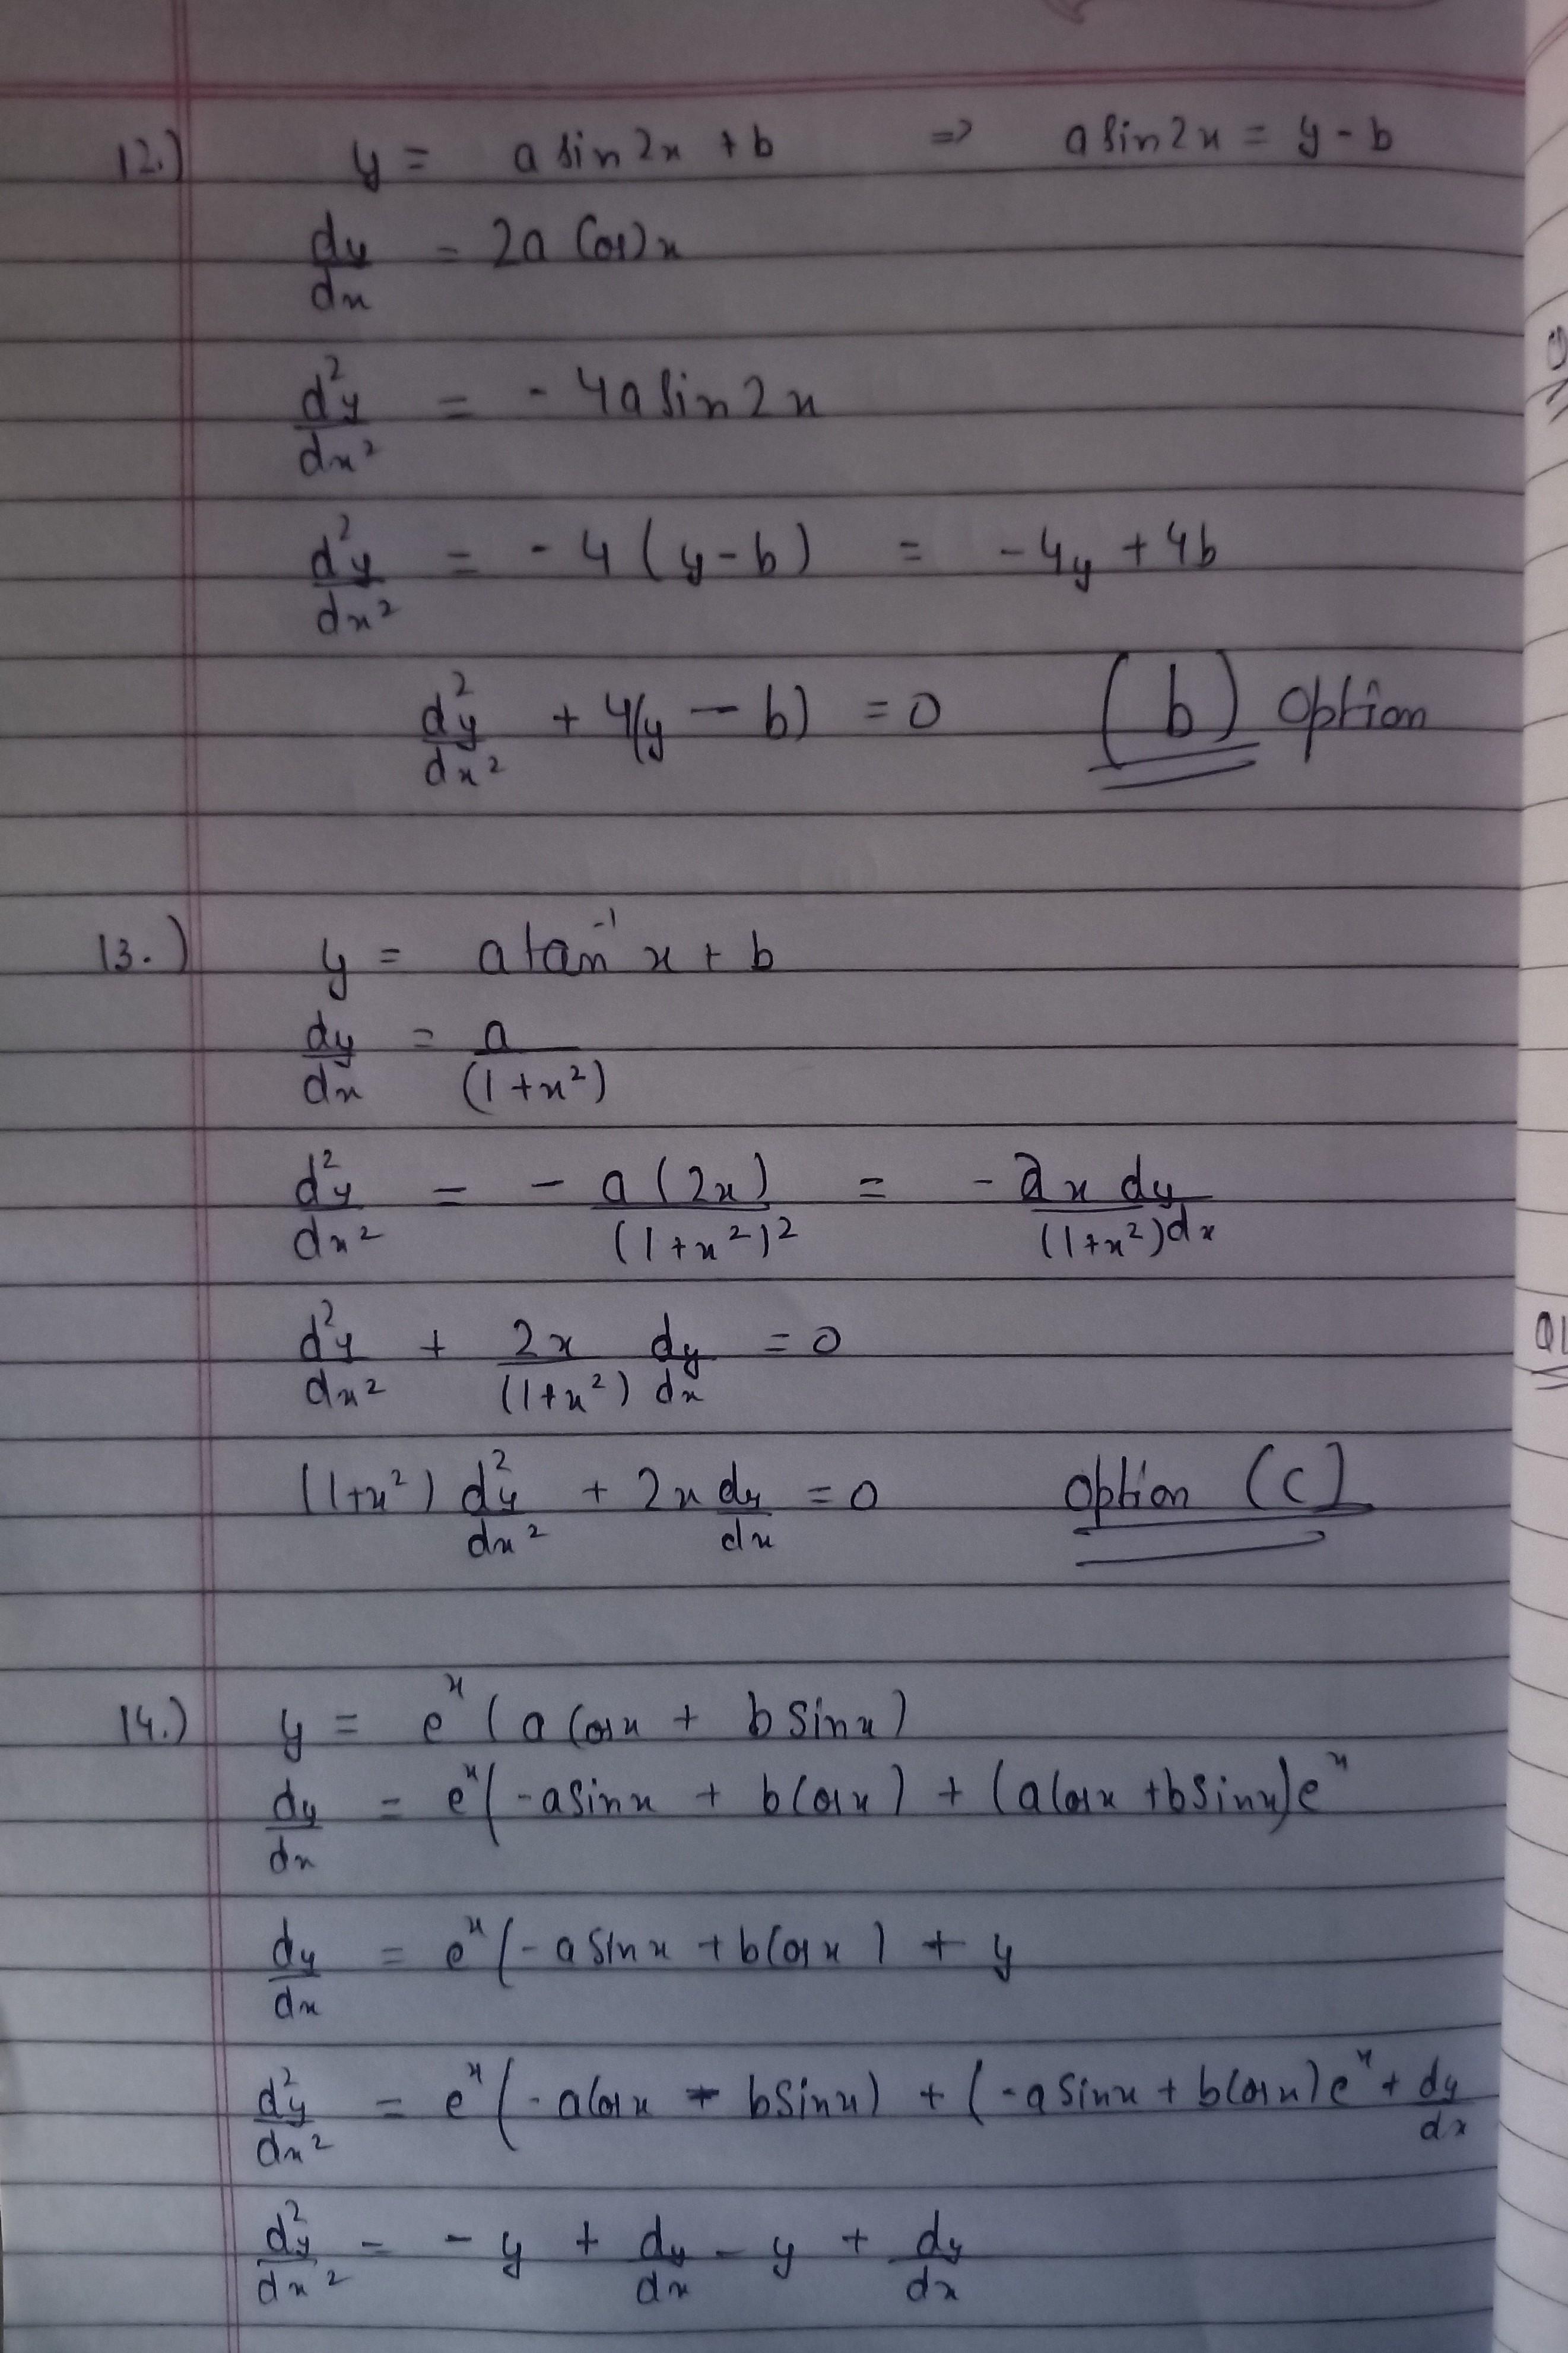 12.) y = a sin2x + b ⇒ a sin2x = y - b
dy/dx = 2a Cos2x
d²y/dx² = - 4a sin2x
d²y/dx² = - 4 (y - b) = - 4y + 4b
d²y/dx² + 4(y - b) = 0 (b) option
13.) y = a tan⁻¹ x + b
dy/dx = a/(1+x²)
d²y/dx² = - a(2x)/(1+x²)² = - 2x dy/(1+x²)dx
d²y/dx² + 2x/(1+x²) dy/dx = 0
(1+x²) d²y/dx² + 2x dy/dx = 0 option (c)
14.) y = eˣ (a Cosx + b sinx)
dy/dx = eˣ(-a sinx + b Cosx) + (a Cosx + b sinx)eˣ
dy/dx = eˣ(-a sinx + b Cosx) + y
d²y/dx² = eˣ(-a Cosx - b sinx) + (-a sinx + b Cosx)eˣ + dy/dx
d²y/dx² = - y + dy/dx - y + dy/dx